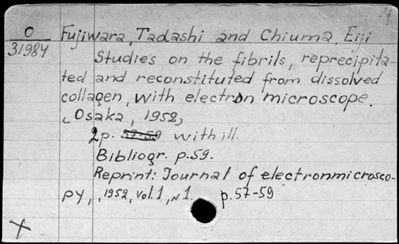 O Fujiwara, Tadashi and Chiuma, Eiji
31984 Studies on the fibrils, reprecipita-
ted and reconstituted from dissolved
collagen, with electron microscope.
Osaka, 1952,
2p. 57-59 with ill.
Bibliogr. p.59.
Reprint: Journal of electronmicrosco-
py, 1952, vol.1, N1. p.57-59
X